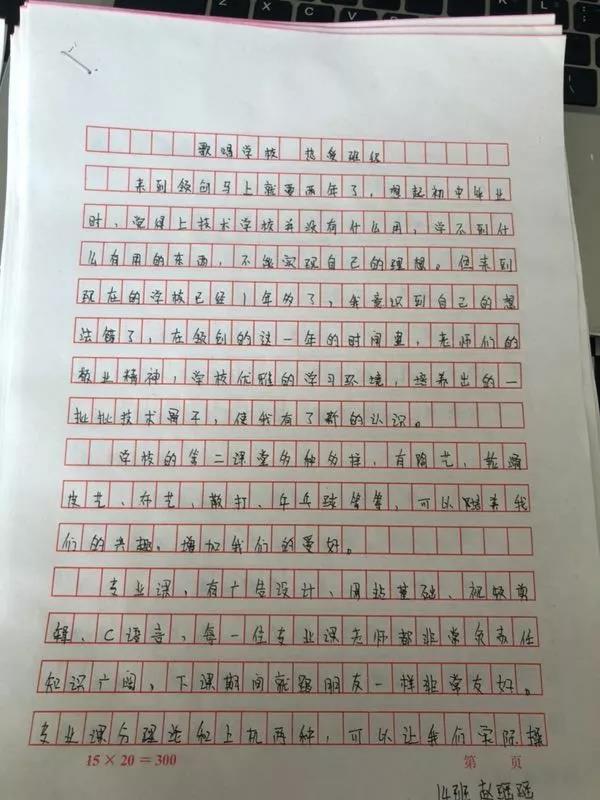 歌唱学校 热爱班级
来到领创马上就要两年了,想起初中毕业
时,觉得上技术学校并没有什么用,学不到什
么有用的东西,不能实现自己的理想。但来到
现在的学校已经1年多了,我意识到自己的想
法错了,在领创的这一年的时间里,老师们的
敬业精神,学校优雅的学习环境,培养出的一
批批技术骨干,使我有了新的认识。
学校的第二课堂多种多样,有陶艺、
皮艺、布艺、散打、乒乓球等等,可以培养我
们的兴趣,增加我们的爱好。
专业课,有广告设计、网站基础、视频剪
辑、C语言,每一位专业课老师都非常负责任
知识广阔,下课期间就跟朋友一样非常友好。
专业课分理论和上机两种,可以让我们实际操
15×20=300 第 页
14班 赵